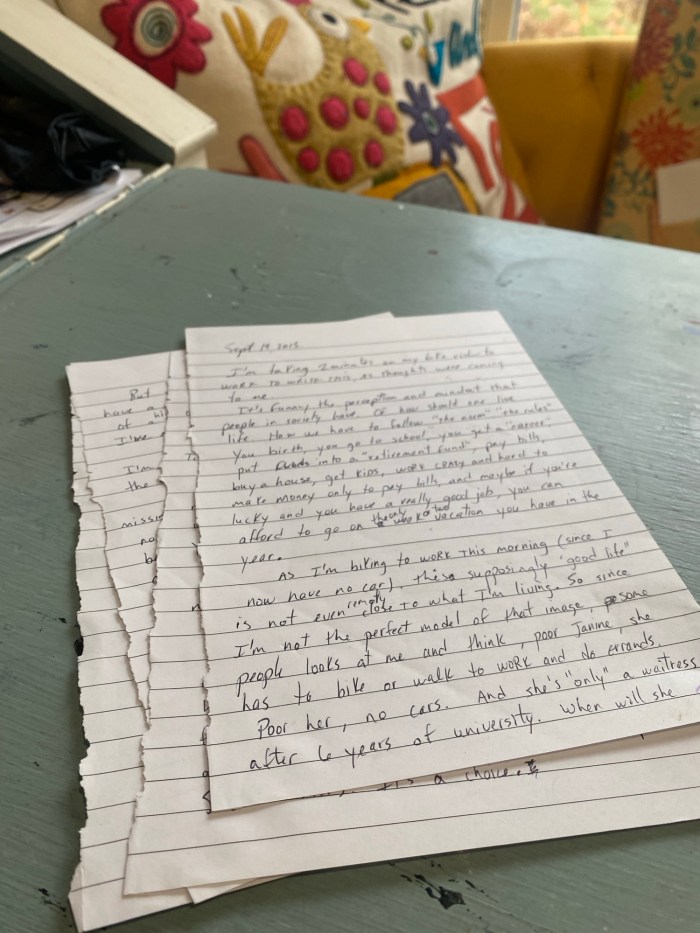 Sept 19, 2013
I'm taking 2 minutes on my bike ride to
work to write this, as thoughts were coming
to me.
It's funny the perception and mindset that
people in society have. Of how should one live
life. How we have to follow "the norm" "the rules"
You birth, you go to school, you get a "career",
put into a "retirement fund", pay bills,
buy a house, get kids, work crazy and hard to
make money only to pay bills, and maybe if you're
lucky and you have a really good job, you can
afford to go on the only week or two vacation you have in the
year.
As I'm biking to work this morning (since I
now have no car), this supposingly "good life"
is not even remotly close to what I'm living. So since
I'm not the perfect model of that image, some
people looks at me and think, poor Janine, she
has to bike or walk to work and do errands.
Poor her, no cars. And she's "only" a waitress
after 6 years of university. When will she
a choice.
But
have a
of a
I've
I'm
the
missi
no
b
and